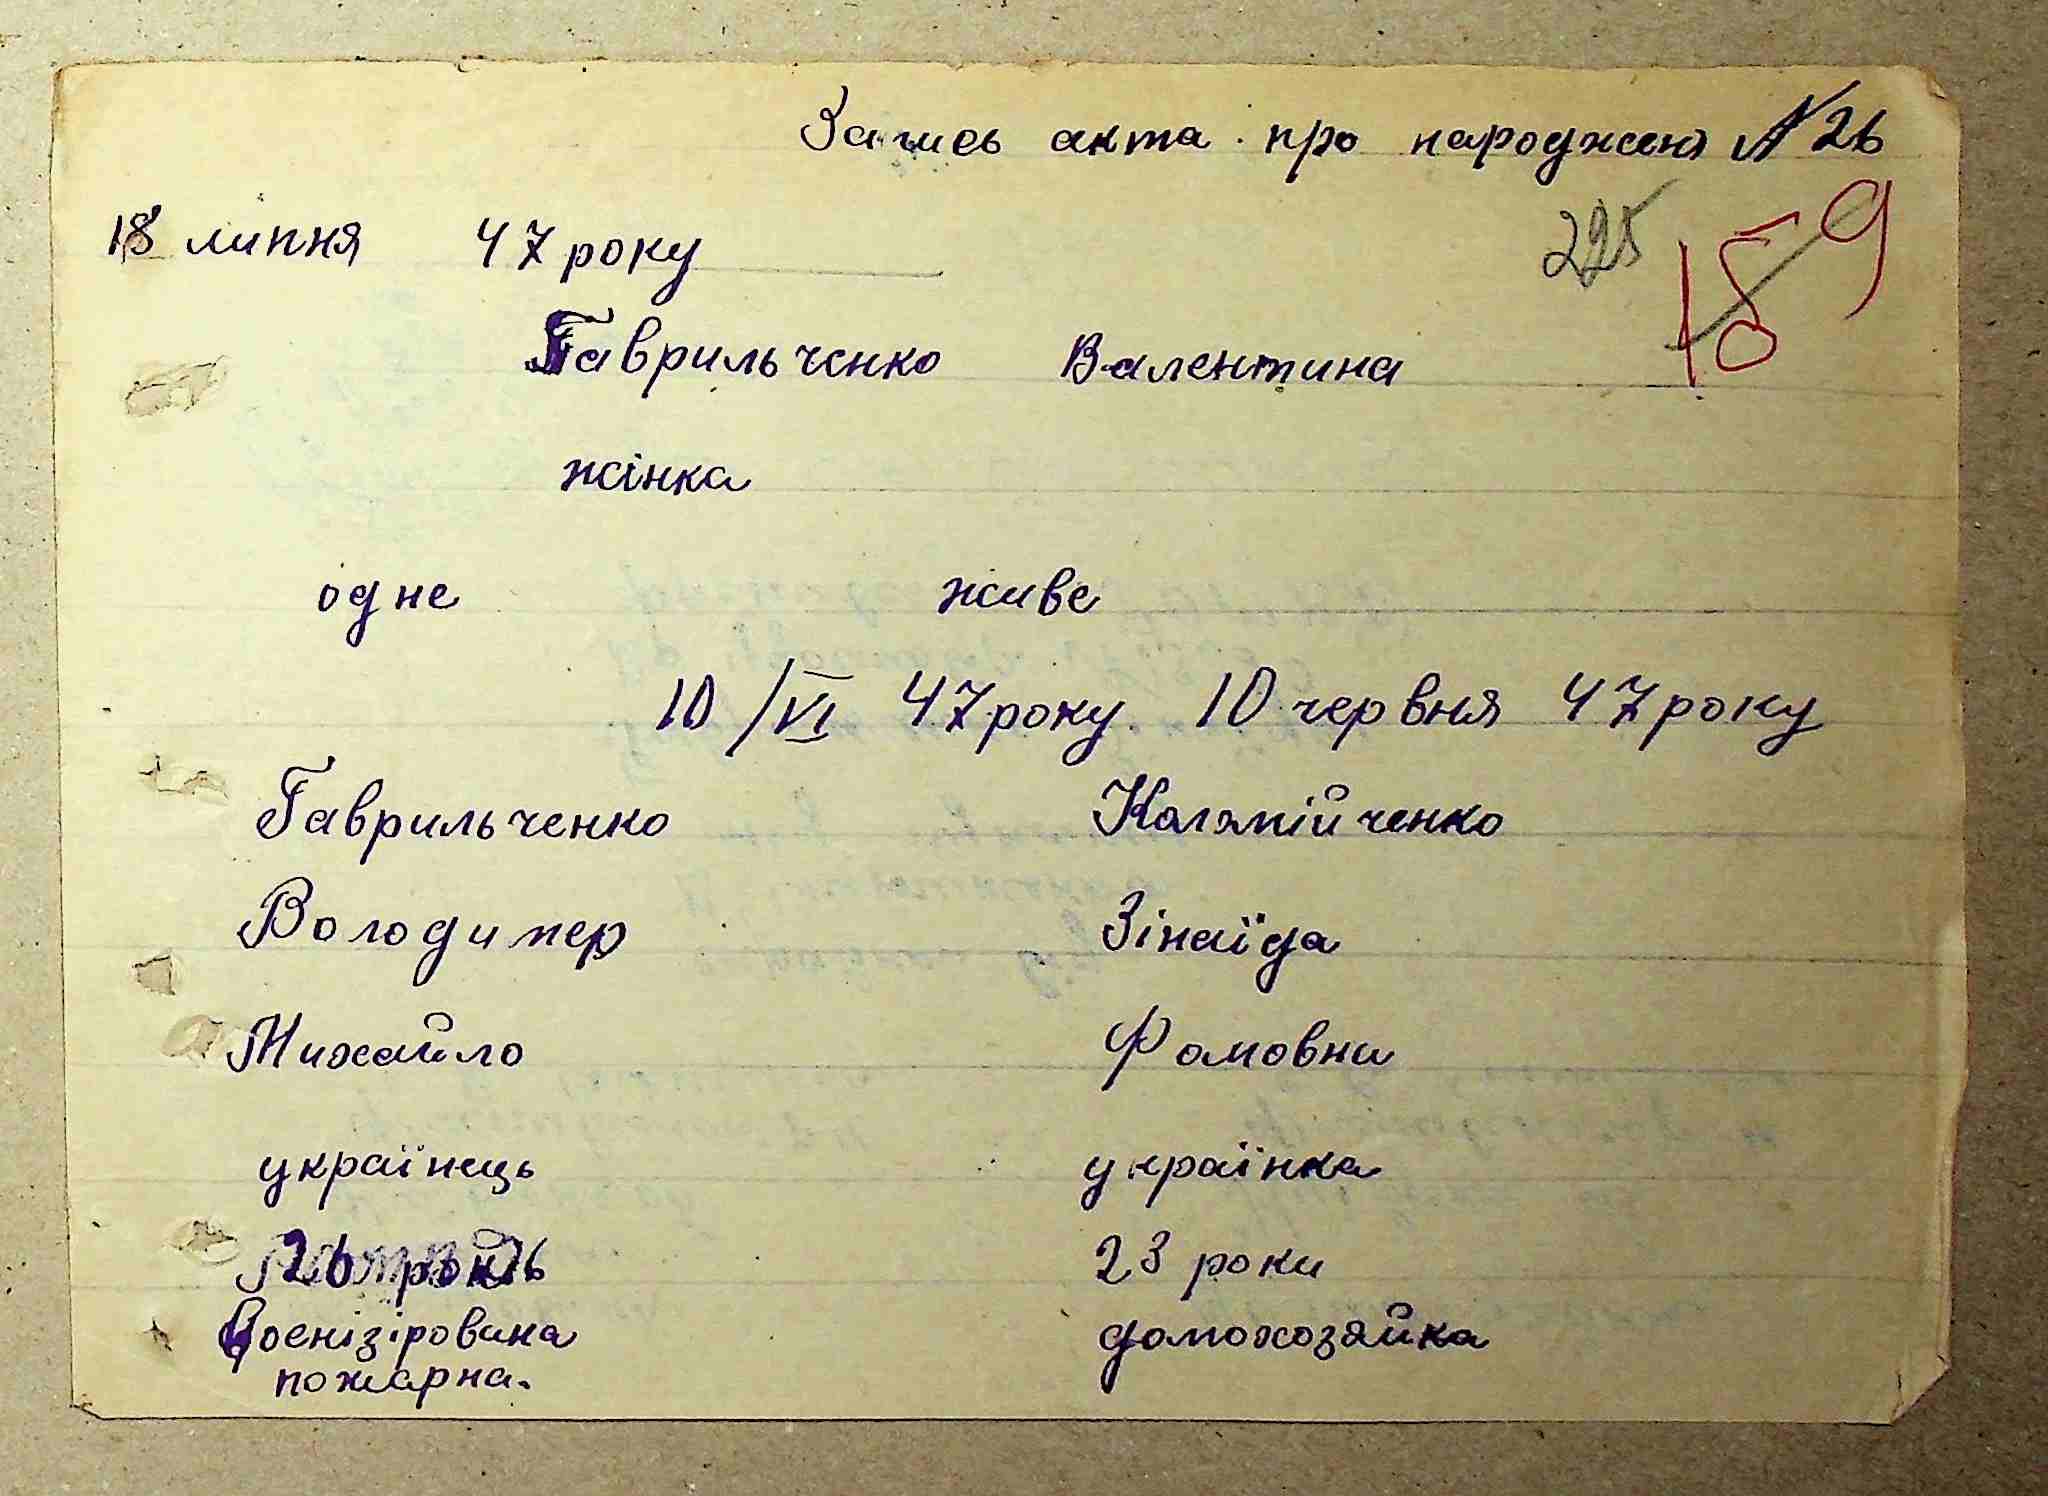 Запись акта про народженя № 26
18 липня 47 року
225 189
Гаврильченко Валентина
жінка
одне живе
10 /VI 47 року. 10 червня 47 року
Гаврильченко Коломійченко
Володимер Зінаїда
Михайло Фомовна
українець українка
26 23 роки
Воєнізірована домохозяйка
пожарна.